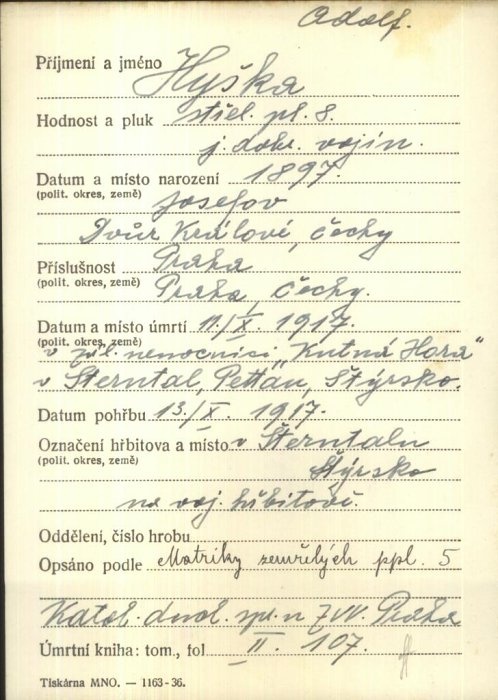 Adolf.
Příjmení a jméno Hyška
Hodnost a pluk střel. pl. 8.
j. dobr. vojín.
Datum a místo narození 1897.
(polit. okres, země) Josefov
Dvůr Králové, Čechy
Příslušnost Praha
(polit. okres, země) Praha, Čechy.
Datum a místo úmrtí 11./X. 1917.
(polit. okres, země)
v zál. nemocnici „Kutná Hora"
v Šterntal, Pettau, Štýrsko.
Datum pohřbu 13./X. 1917.
Označení hřbitova a místo v Šterntalu
(polit. okres, země) Štýrsko
na voj. hřbitově.
Oddělení, číslo hrobu
Opsáno podle Matriky zemřelých ppl. 5
Katol. duch. spr. ZVV. Praha
Úmrtní kniha: tom., fol. II. 107.
Tiskárna MNO. — 1163-36.